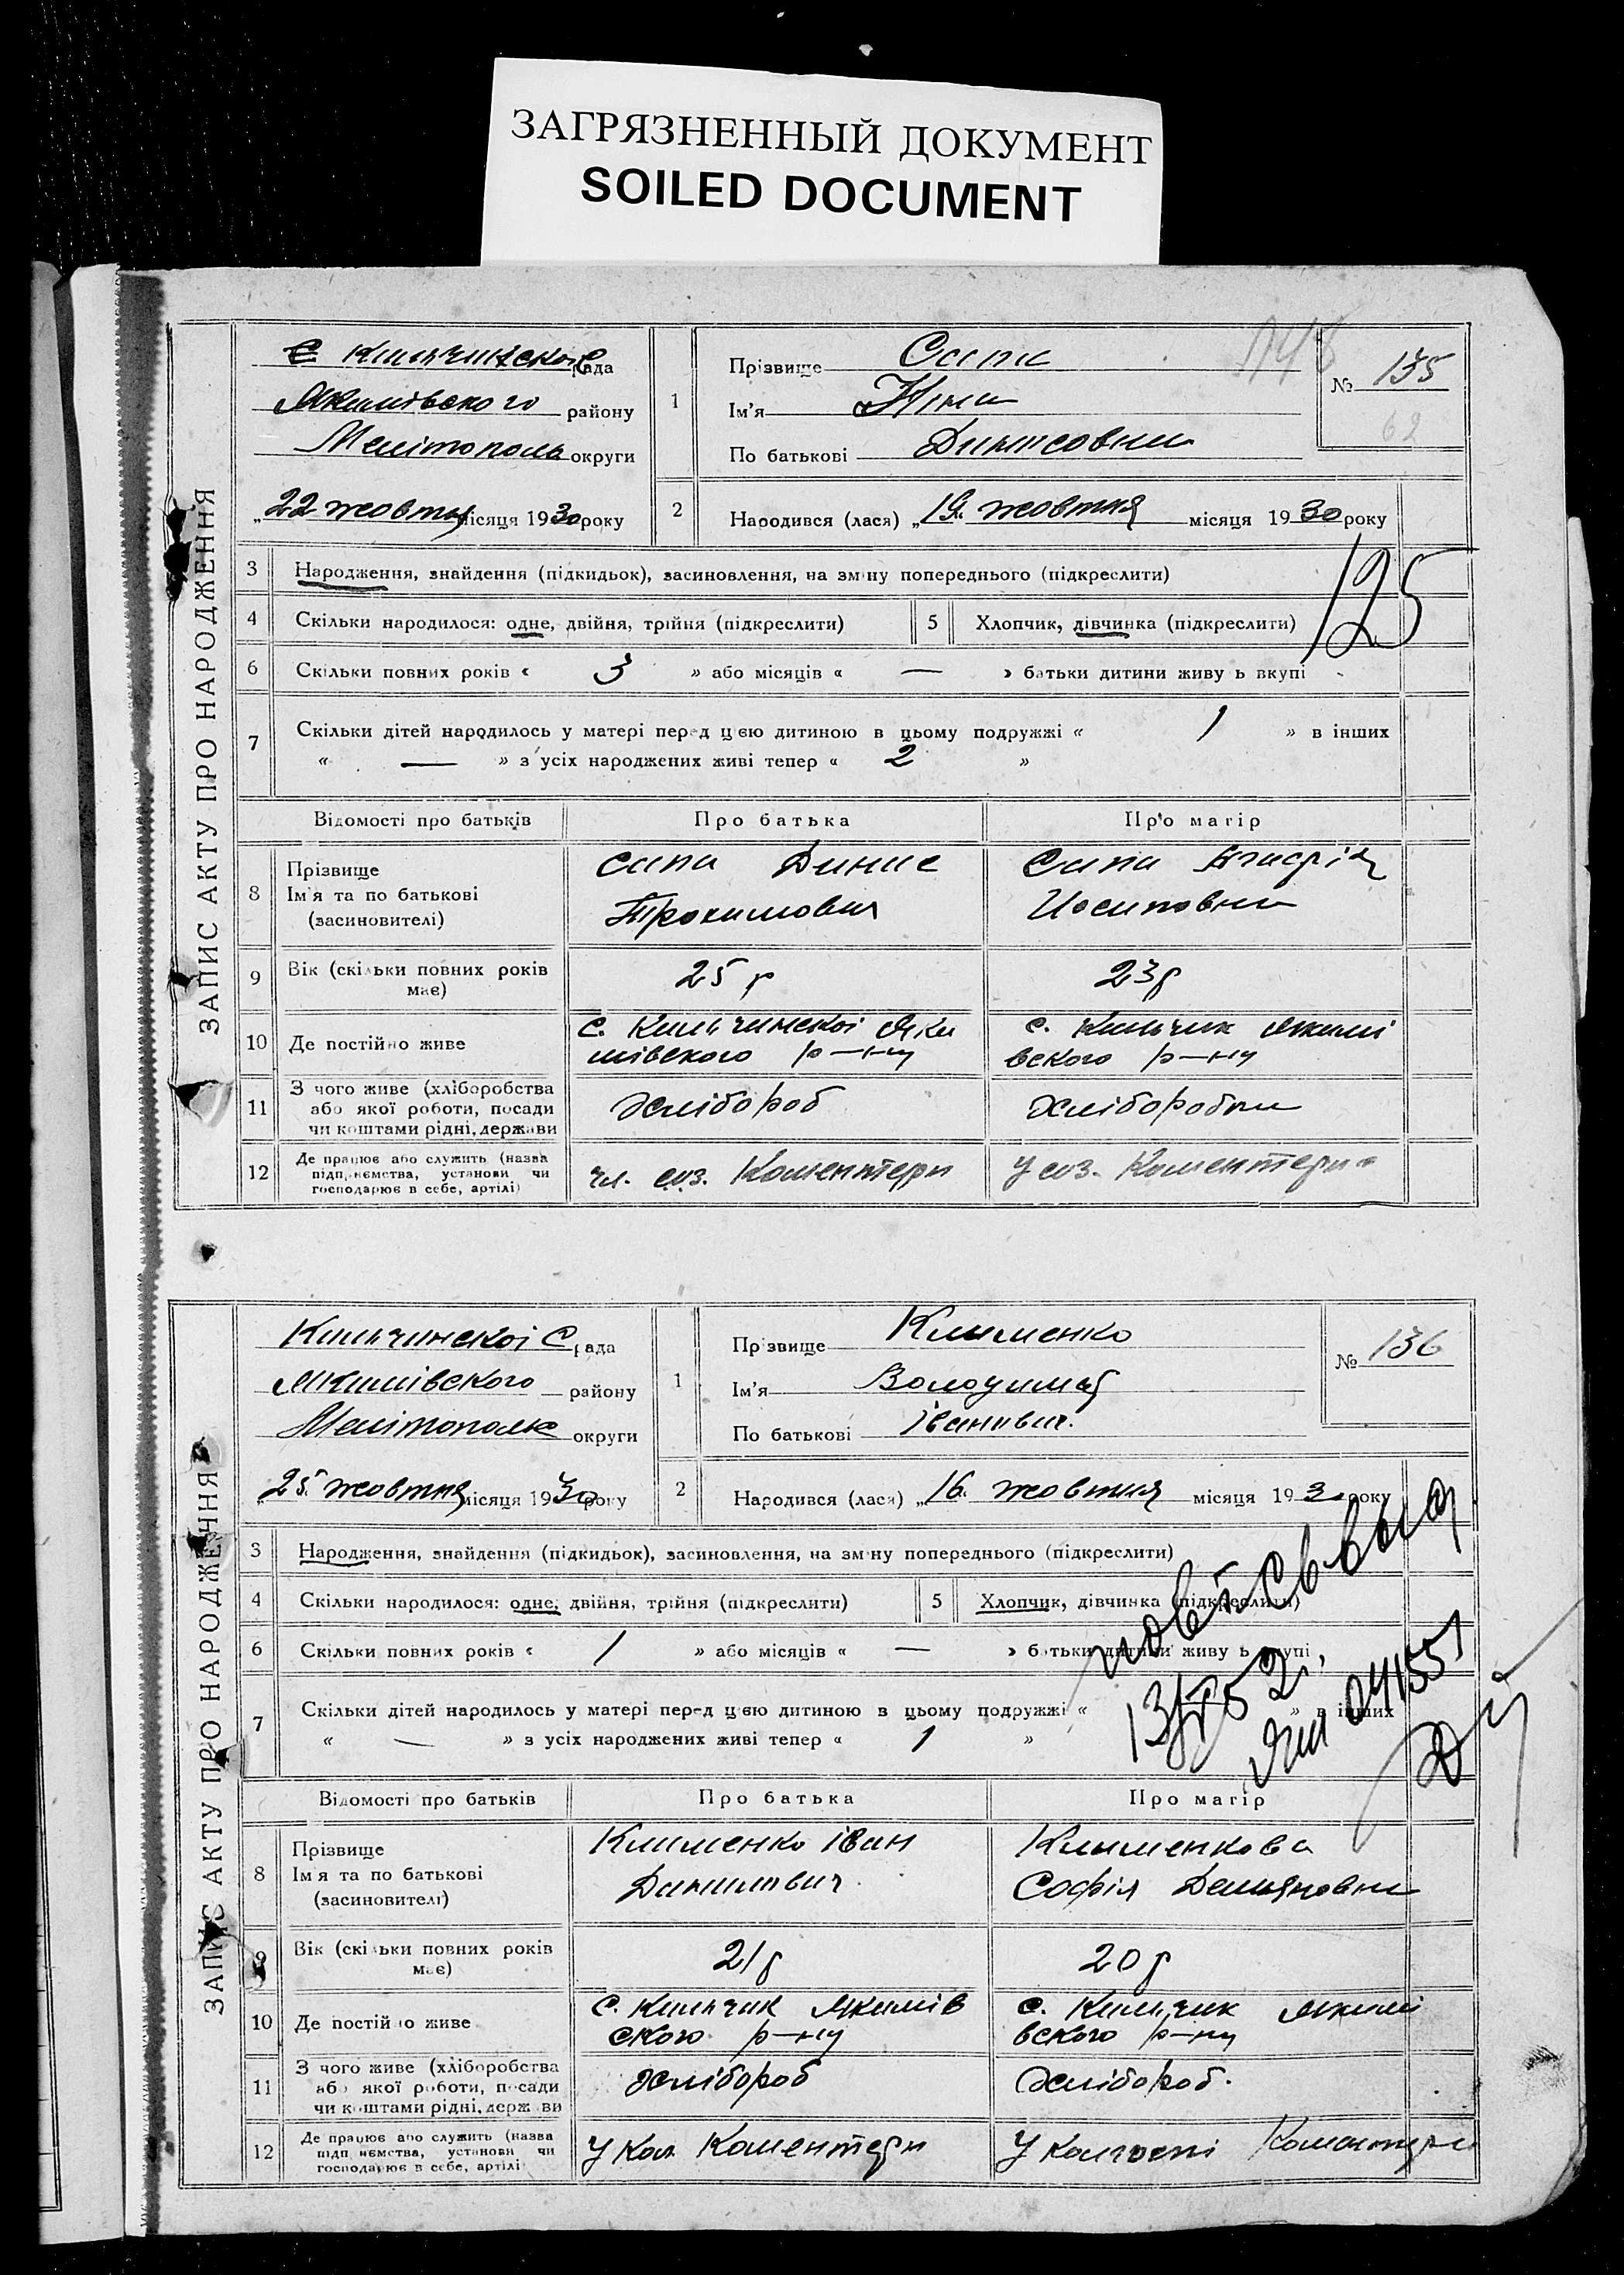 ЗАГРЯЗНЕННЫЙ ДОКУМЕНТ
SOILED DOCUMENT
ЗАПИС АКТУ ПРО НАРОДЖЕННЯ
рада
Якимівского району
Мелітополь округи
„22 жовтня місяця 1930 року
1
Прізвище Сапа
Ім'я Ніна
По батькові Динисовна
№ 135
62
2
Народився (лася) „19„ жовтня місяця 1930 року
125
3 Народження, знайдення (підкидьок), засиновлення, на зміну попереднього (підкреслити)
4 Скільки народилося: одне, двійня, трійня (підкреслити) 5 Хлопчик, дівчинка (підкреслити)
6 Скільки повних років « 3 » або місяців « — » батьки дитини живуть вкупі
7 Скільки дітей народилось у матері перед цією дитиною в цьому подружжі « 1 » в інших
« — » з усіх народжених живі тепер « 2 »
Відомості про батьків Про батька Про матір
8 Прізвище
Ім'я та по батькові
(засиновителі)
Сапа Динис
Трохимович
Сапа
Иосиповна
9 Вік (скільки повних років має) 25 р 23 р
10 Де постійно живе
с. Яки
мівского р-ну
с. Кильчик Якимі
вского р-ну
11 З чого живе (хліборобства
або якої роботи, посади
чи коштами рідні, держави
Хлібороб
Хлібородка
12 Де працює або служить (назва
підприємства, установи чи
господарює в себе, артілі)
чл. соз. Коментерн
У соз. Коментерна
ЗАПИС АКТУ ПРО НАРОДЖЕННЯ
Кильчинскоі С рада
Якимівского району
Мелітополь округи
„25„ жовтня місяця 1930 року
1
Прізвище Клименко
Ім'я Володимар
По батькові Іванович.
№ 136
2
Народився (лася) „16„ жовтня місяця 1930 року
3 Народження, знайдення (підкидьок), засиновлення, на зміну попереднього (підкреслити)
4 Скільки народилося: одне, двійня, трійня (підкреслити) 5 Хлопчик, дівчинка (підкреслити)
6 Скільки повних років « 1 » або місяців « — » батьки дитини живуть вкупі
7 Скільки дітей народилось у матері перед цією дитиною в цьому подружжі « » в інших
« — » з усіх народжених живі тепер « 1 »
Відомості про батьків Про батька Про матір
8 Прізвище
Ім'я та по батькові
(засиновителі)
Клименко Іван
Данилович.
Клименкова
Софія Демяновна
9 Вік (скільки повних років має) 21 р 20 р
10 Де постійно живе
с. Кильчик Якимів
ского р-ну
с. Кильчик Якимі
вского р-ну
11 З чого живе (хліборобства
або якої роботи, посади
чи коштами рідні, держави
Хлібороб
Хлібороб.
12 Де працює або служить (назва
підприємства, установи чи
господарює в себе, артілі
У Кол Коментерн
У Колгоспі